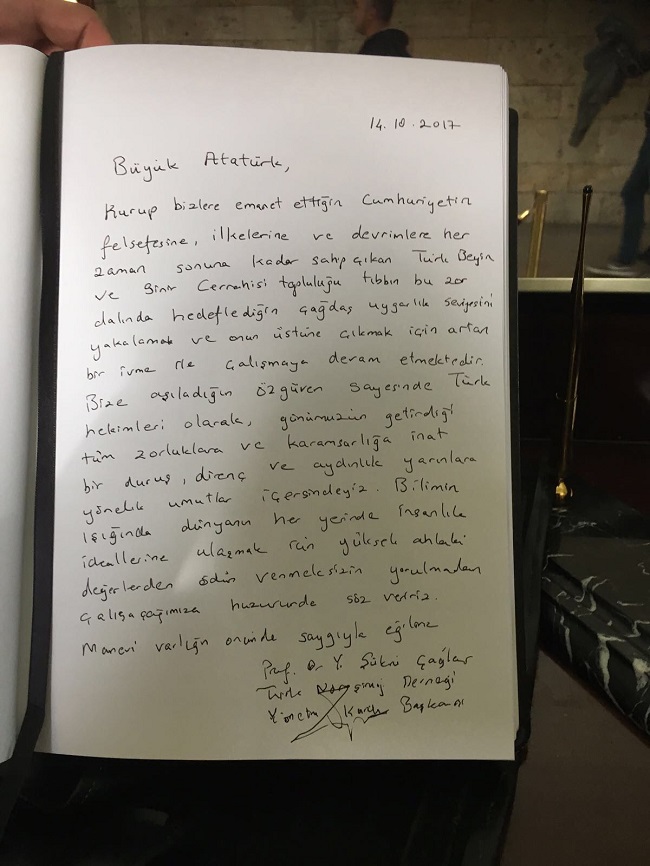 14.10.2017
Büyük Atatürk,
Kurup bizlere emanet ettiğin Cumhuriyetin
felsefesine, ilkelerine ve devrimlere her
zaman sonuna kadar sahip çıkan Türk Beyin
ve Sinir Cerrahisi topluluğu tıbbın bu zor
dalında hedeflediğin çağdaş uygarlık seviyesini
yakalamak ve onun üstüne çıkmak için artan
bir ivme ile çalışmaya devam etmektedir.
Bize aşıladığın özgüven sayesinde Türk
hekimleri olarak, günümüzün getirdiği
tüm zorluklara ve karamsarlığa inat
bir duruş, direnç ve aydınlık yarınlara
yönelik umutlar içersindeyiz. Bilimin
ışığında dünyanın her yerinde insanlık
ideallerine ulaşmak için yüksek ahlaki
değerlerden ödün vermeksizin yorulmadan
çalışacağımıza huzurunda söz veririz.
Manevi varlığın önünde saygıyla eğilme
Prof. Dr Y. Şükrü Çağlar
Türk Nöroşirürji Derneği
Yönetim Kurulu Başkanı